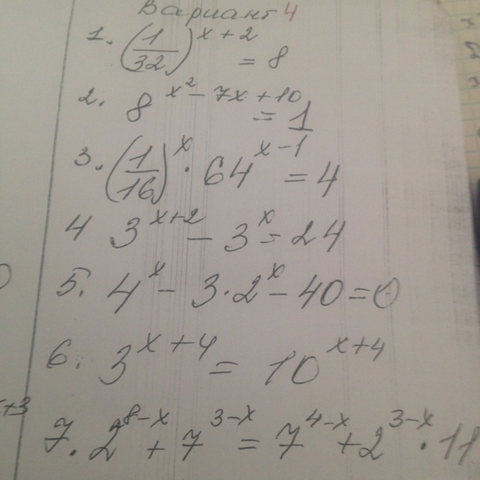 Вариант 4
1. (1/32)^(x+2) = 8
2. 8^(x²-7x+10) = 1
3. (1/16)^x · 64^(x-1) = 4
4 3^(x+2) - 3^x = 24
5. 4^x - 3·2^x - 40 = 0
6. 3^(x+4) = 10^(x+4)
7. 2^(8-x) + 7^(3-x) = 7^(4-x) + 2^(3-x) · 11